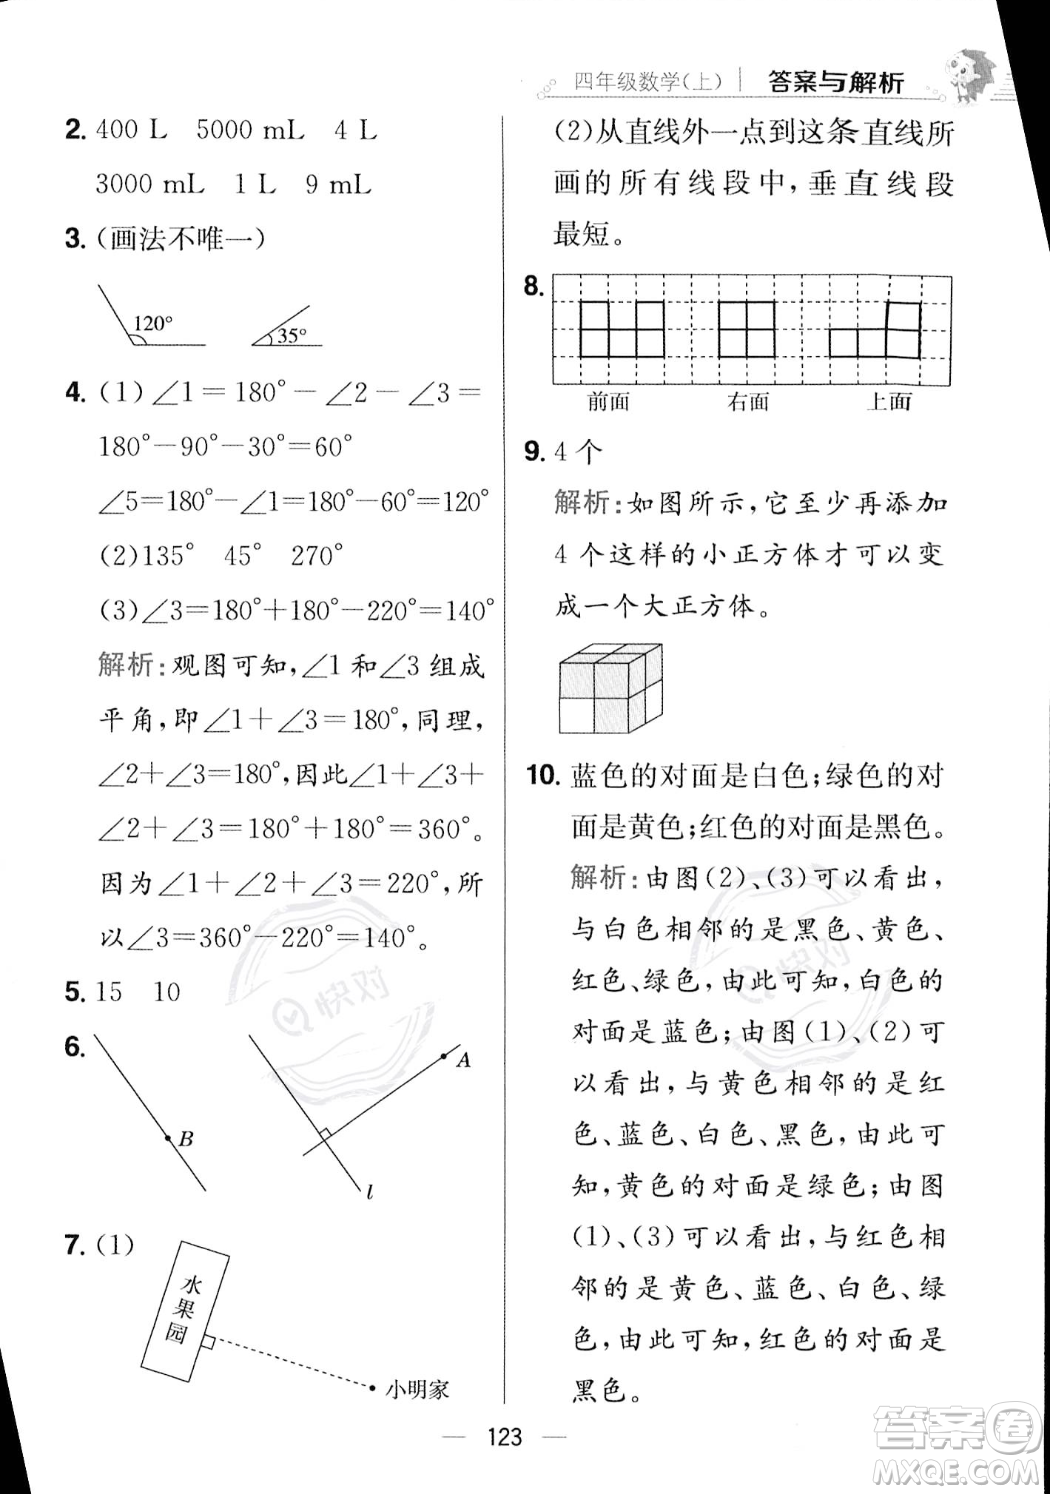 四年级数学(上) 答案与解析
2. 400 L 5000 mL 4 L
3000 mL 1 L 9 mL
3. (画法不唯一)
120° 35°
4. (1)∠1=180°-∠2-∠3=
180°-90°-30°=60°
∠5=180°-∠1=180°-60°=120°
(2)135° 45° 270°
(3)∠3=180°+180°-220°=140°
解析:观图可知,∠1和∠3组成
平角,即∠1+∠3=180°,同理,
∠2+∠3=180°,因此∠1+∠3+
∠2+∠3=180°+180°=360°。
因为∠1+∠2+∠3=220°,所
以∠3=360°-220°=140°。
5. 15 10
6.
A
B
l
7. (1)
水果园
小明家
(2)从直线外一点到这条直线所
画的所有线段中,垂直线段
最短。
8.
前面 右面 上面
9. 4个
解析:如图所示,它至少再添加
4个这样的小正方体才可以变
成一个大正方体。
10. 蓝色的对面是白色;绿色的对
面是黄色;红色的对面是黑色。
解析:由图(2)、(3)可以看出,
与白色相邻的是黑色、黄色、
红色、绿色,由此可知,白色的
对面是蓝色;由图(1)、(2)可
以看出,与黄色相邻的是红
色、蓝色、白色、黑色,由此可
知,黄色的对面是绿色;由图
(1)、(3)可以看出,与红色相
邻的是黄色、蓝色、白色、绿
色,由此可知,红色的对面是
黑色。
123
快对
快对
答案卷
MXQE.COM